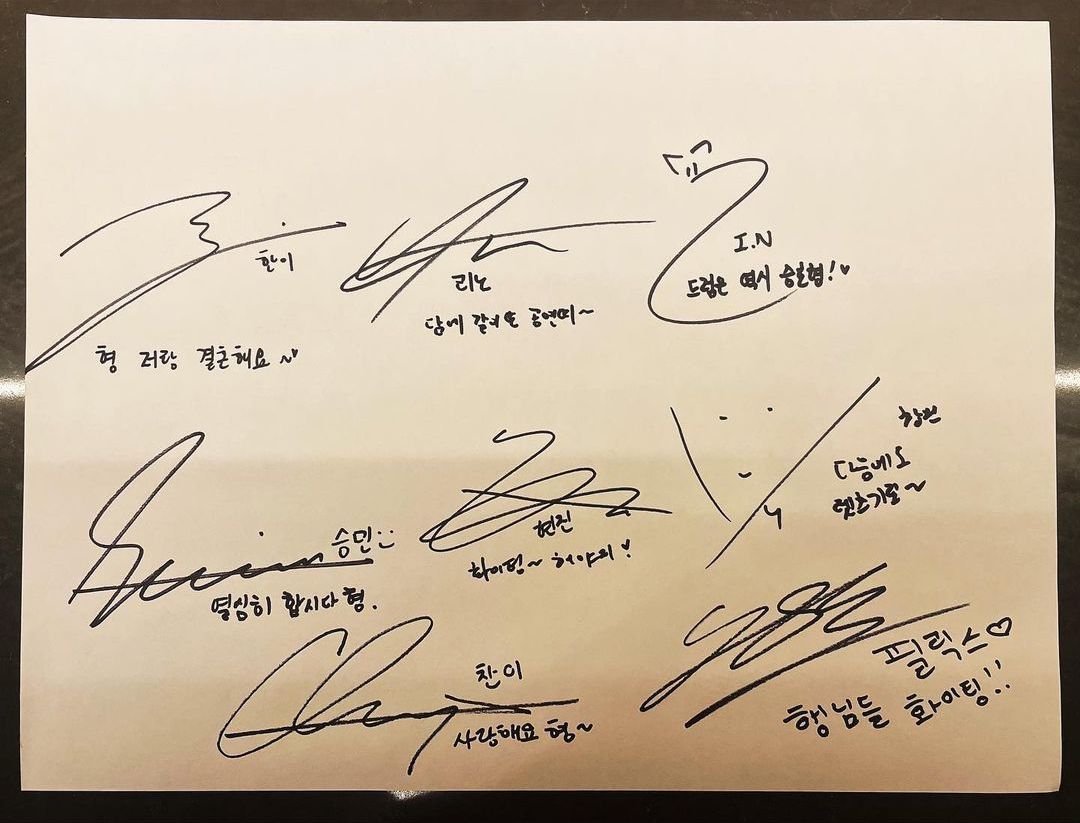 한이
형 저랑 결혼해요~♥
리노
담에 같이 또 공연떠~
I.N
드럼은 역시 승호형!♥
승민:)
열심히 합시다 형.
현진
화이팅~ ♥
창빈
다음에도
렛츠기릿~
찬이
사랑해요 형~
필릭스♡
행님들 화이팅!!